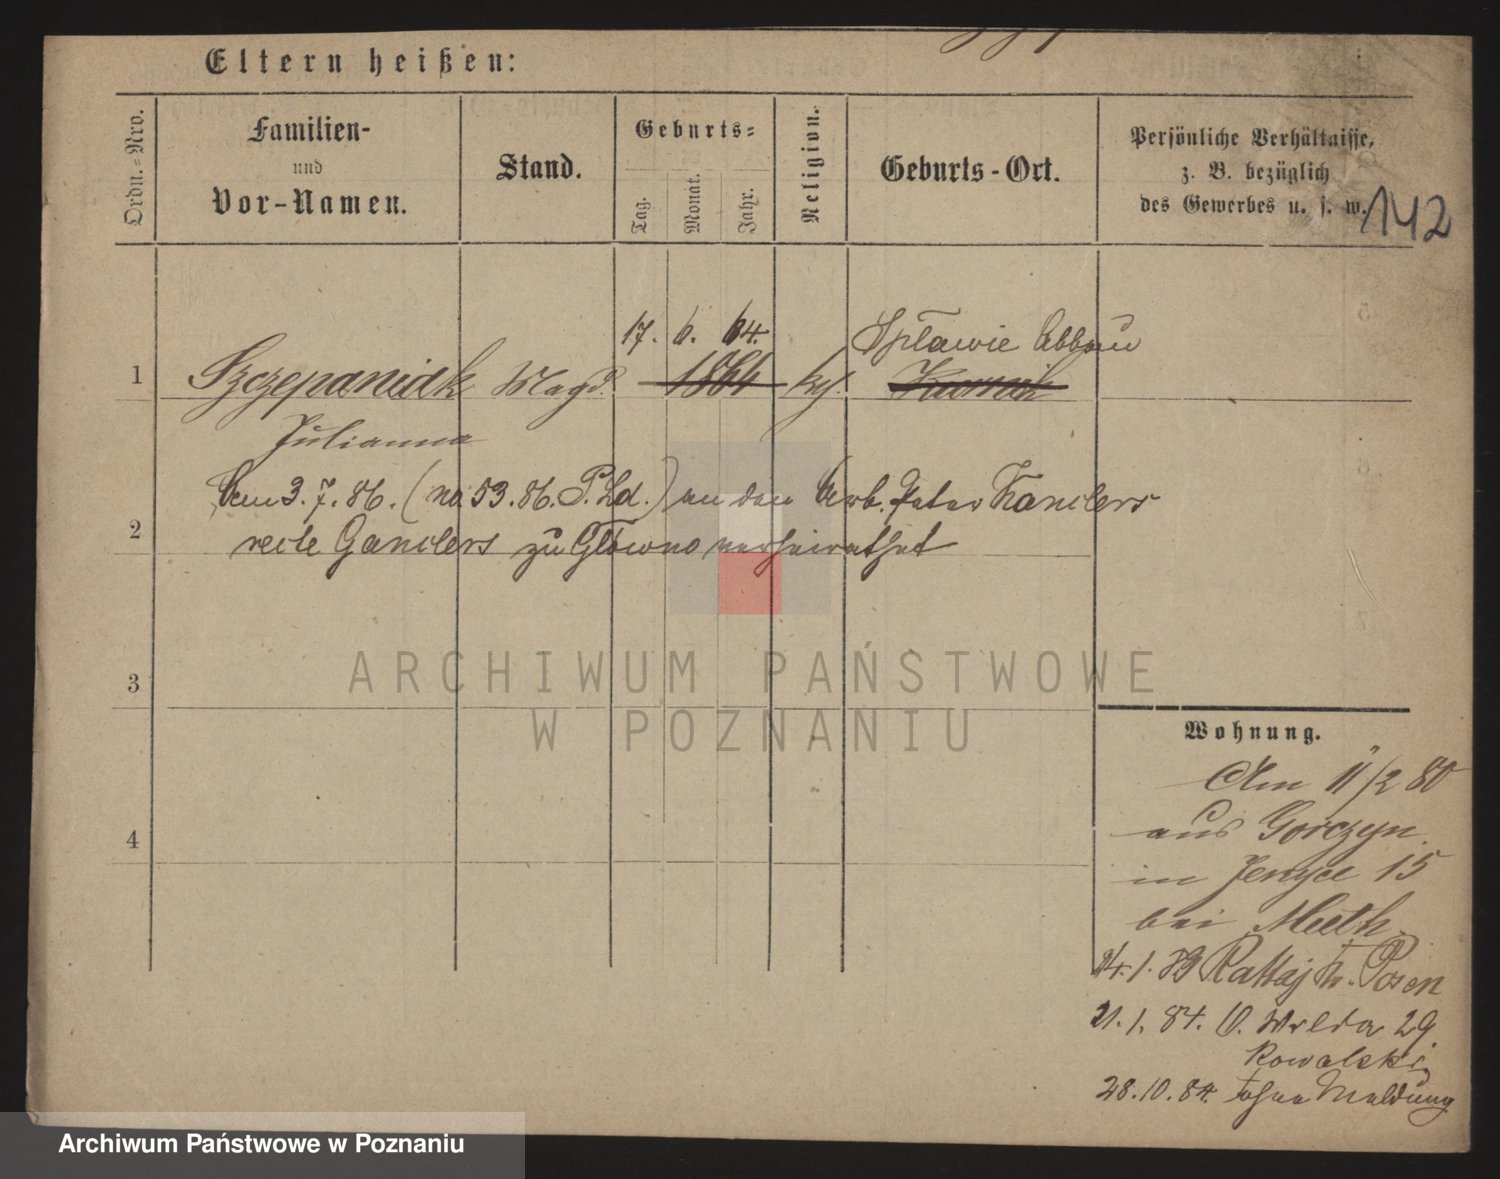 Eltern heißen:
Ordn.-Nro.
Familien-
und
Vor-Namen.
Stand.
Geburts-
Tag.
Monat.
Jahr.
Religion.
Geburts-Ort.
Persönliche Verhältnisse,
z. B. bezüglich
des Gewerbes u. s. w.
142
17. 6. 64.
Spławie Abbau
1 Szczepaniak Magd. 1864 kth. Kurnik
Julianna
3.7.86. (No. 53.86. P. Ld.) an den Arb. Peter Kanders
2 recte Ganders zu Główno verheirathet
3
4
Wohnung.
Am 11/2 80
aus Gorczyn
in Jerzyce 15
bei
24.1.83 Rattaj Posen
21.1.84. O. Wilda 29
Kowalski
28.10.84. ohne Meldung
ARCHIWUM PAŃSTWOWE
W POZNANIU
Archiwum Państwowe w Poznaniu